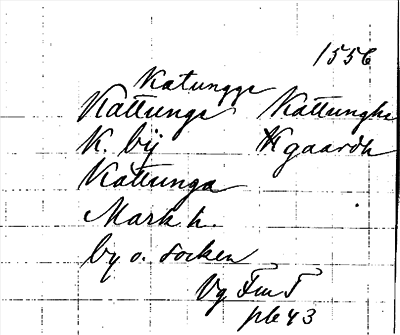 1556
Katungge
Kattunge Kattunghe
K. bÿ Kgaardh
Kattunga
Mark h.
by o. socken
Vg FmT
pl 43